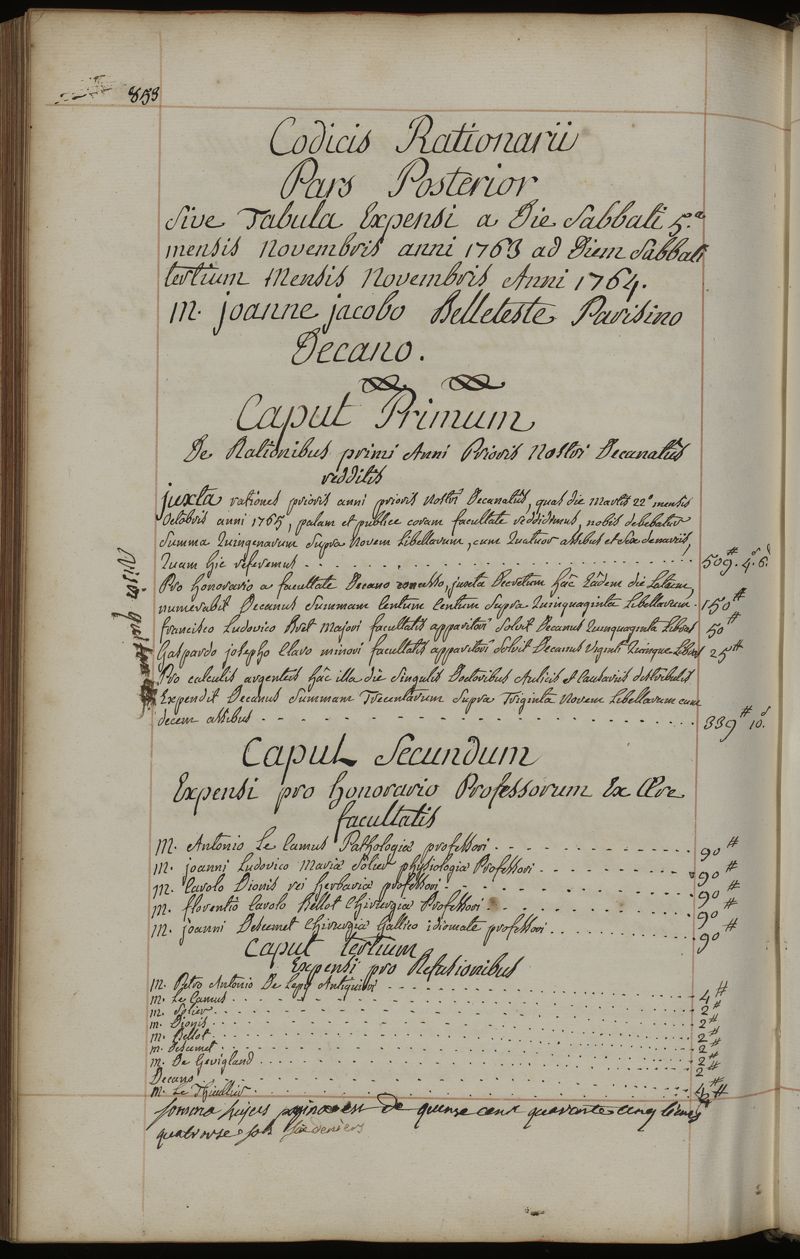 853
Codicis Rationarii
Pars Posterior
Sive Tabula Expensi a Die Sabbati 5.a
mensis Novembris anni 1763 ad Diem Sabbati
tertium Mensis Novembris Anni 1764.
M. joanne jacobo Belleteste Parisino
Decano.
Caput Primum
De Rationibus primi Anni Prioris Nostri Decanatûs
redditis
juxta rationes prioris anni prioris Nostri Decanatûs, quas die Martis 22.a mensis
Octobris anni 1765, palam et publice coram facultate reddidimus, nobis debebatur
Summa Quingenarum Supra Novem Libellarum, cum Quatuor assibus et Sex denariis,
Quam hic referemus 509.# 4.s 6.d
Pro honorario a facultate Decano concesso, juxta Decretum hâc eâdem die Latum,
numerabit Decanus Summam Centum Centum Supra Quinquaginta Libellarum. 150#
francisco Ludovico Bret Majori facultatis apparitori Solvit Decanus Quinquaginta Libras 50#
Gaspardo josepho Clavo minori facultatis apparitori Solvit Decanus Viginti Quinque Libras 25#
Pro calculis argenteis hâc illa die Singulis Doctoribus Aulicis et Castrensis distributis
Expendit Decanus Summam Trecentarum Supra Triginta Novem Libellarum cum
decem assibus 339# 10.s
Caput Secundum
Expensi pro honorario Professorum Ex Ære
facultatis
M. Antonio Le Camus Pathologiæ professori 90#
M. joanni Ludovico Mariæ Solier physiologiæ Professori 90#
M. Carolo Dionis rei herbariæ professori 90#
M. florentio Carolo Bellot Chirurgiæ Professori 90#
M. joanni Descemet Chirurgiæ Gallico idiomate professori 90#
Caput tertium
Expensi pro Refusionibus
M. Petro Antonio De Lepy Antiquiori 4#
M. Le Camus 2#
M. Solier 2#
M. Dionis 2#
M. Bellot 2#
M. Descemet 2#
M. De Gevigland 2#
Decano 4#
M. Le Thuillier 2#
Somma hujus pagina est de quinze cent quarante cinq livres
quatorze sols six deniers